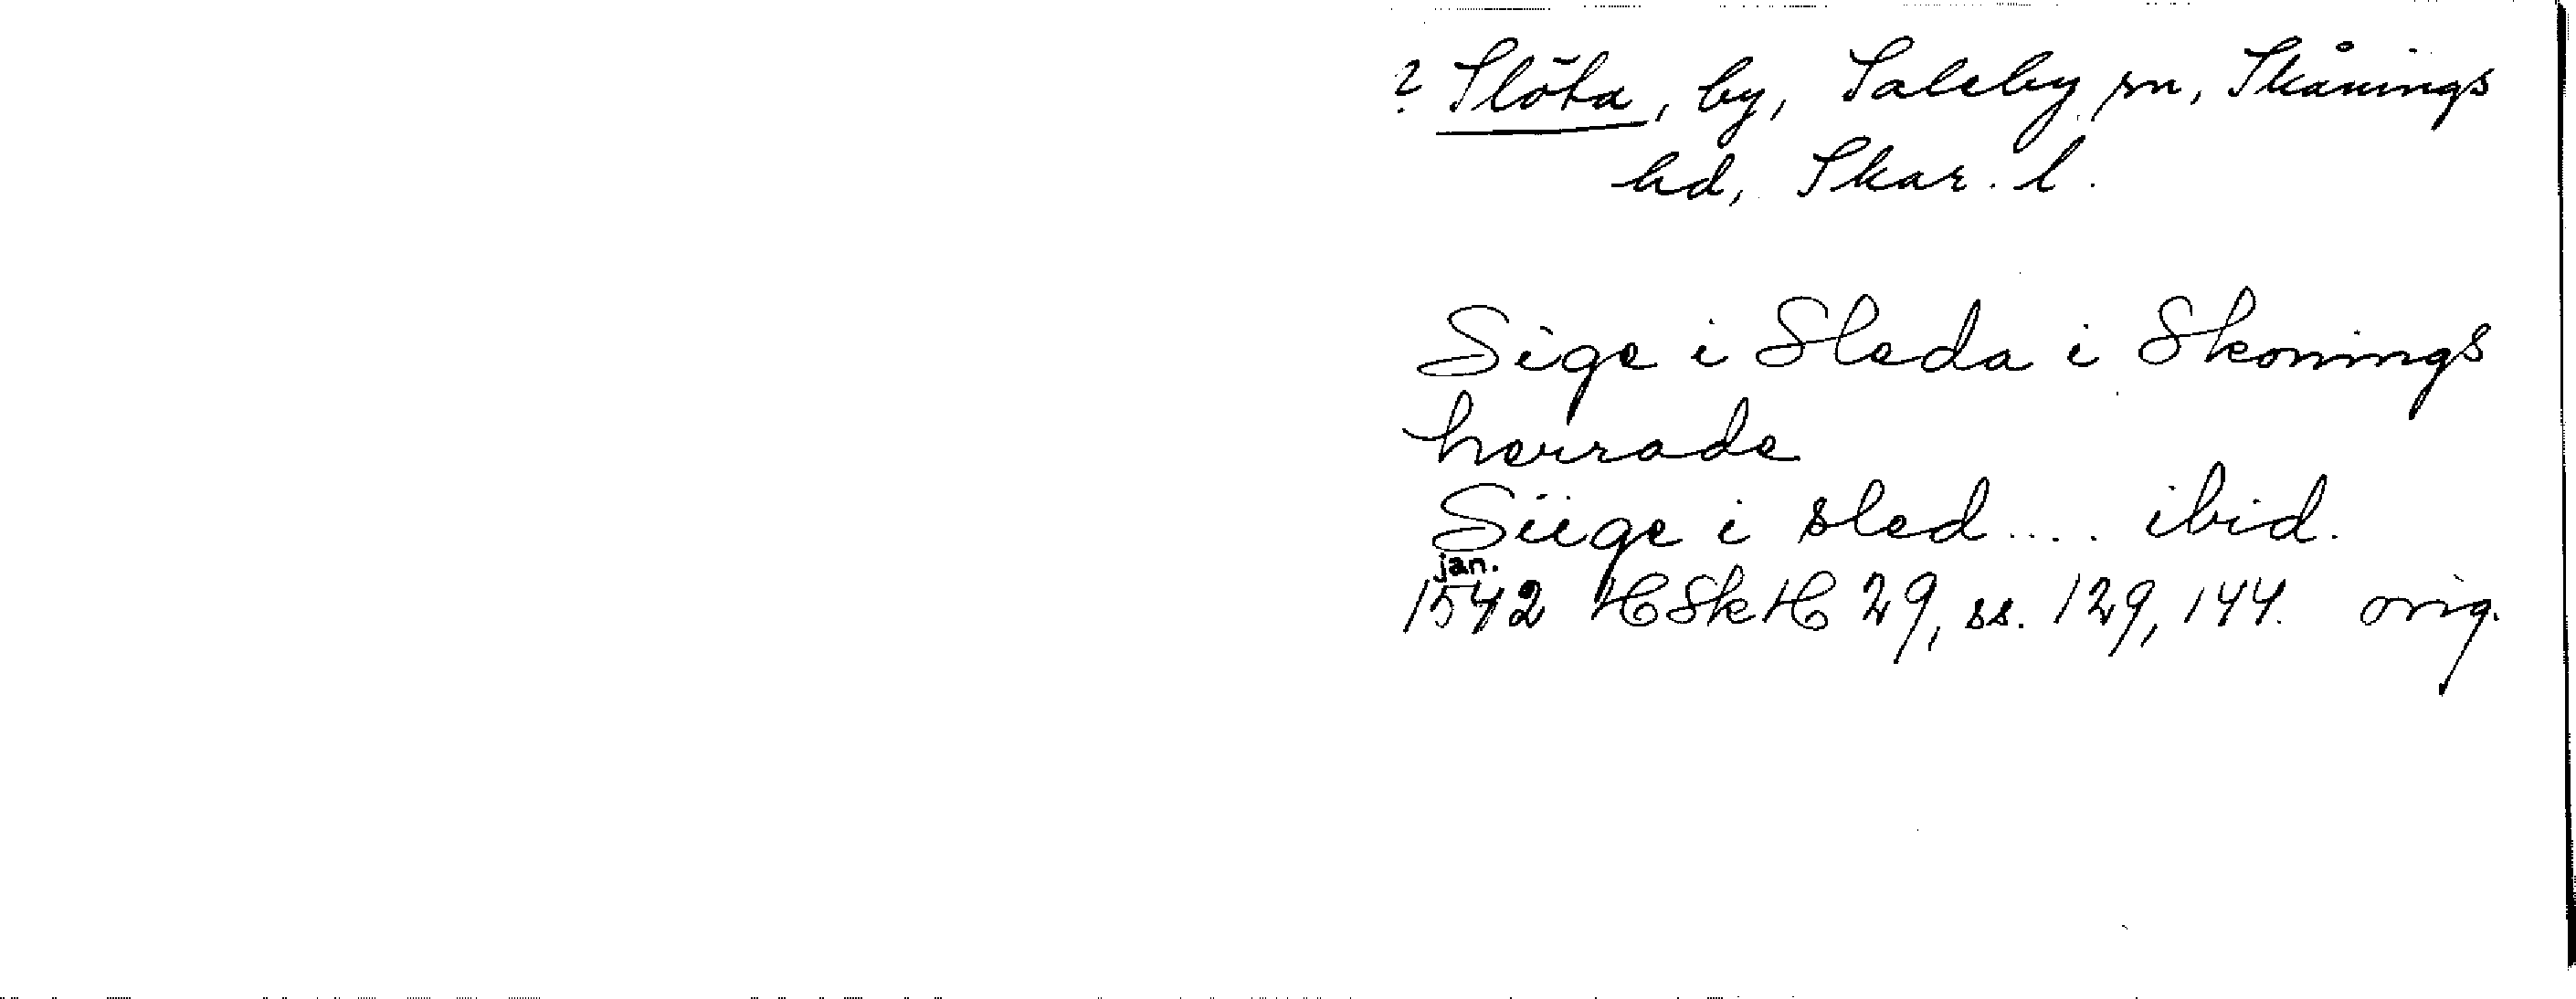 ? Slöta, by, Saleby sn, Skånings
hd, Skar. l.
Sige i Sleda i Skonings
herrade
Siige i sled.... ibid.
jan.
1542 HSkH 29, ss. 129, 144. orig.